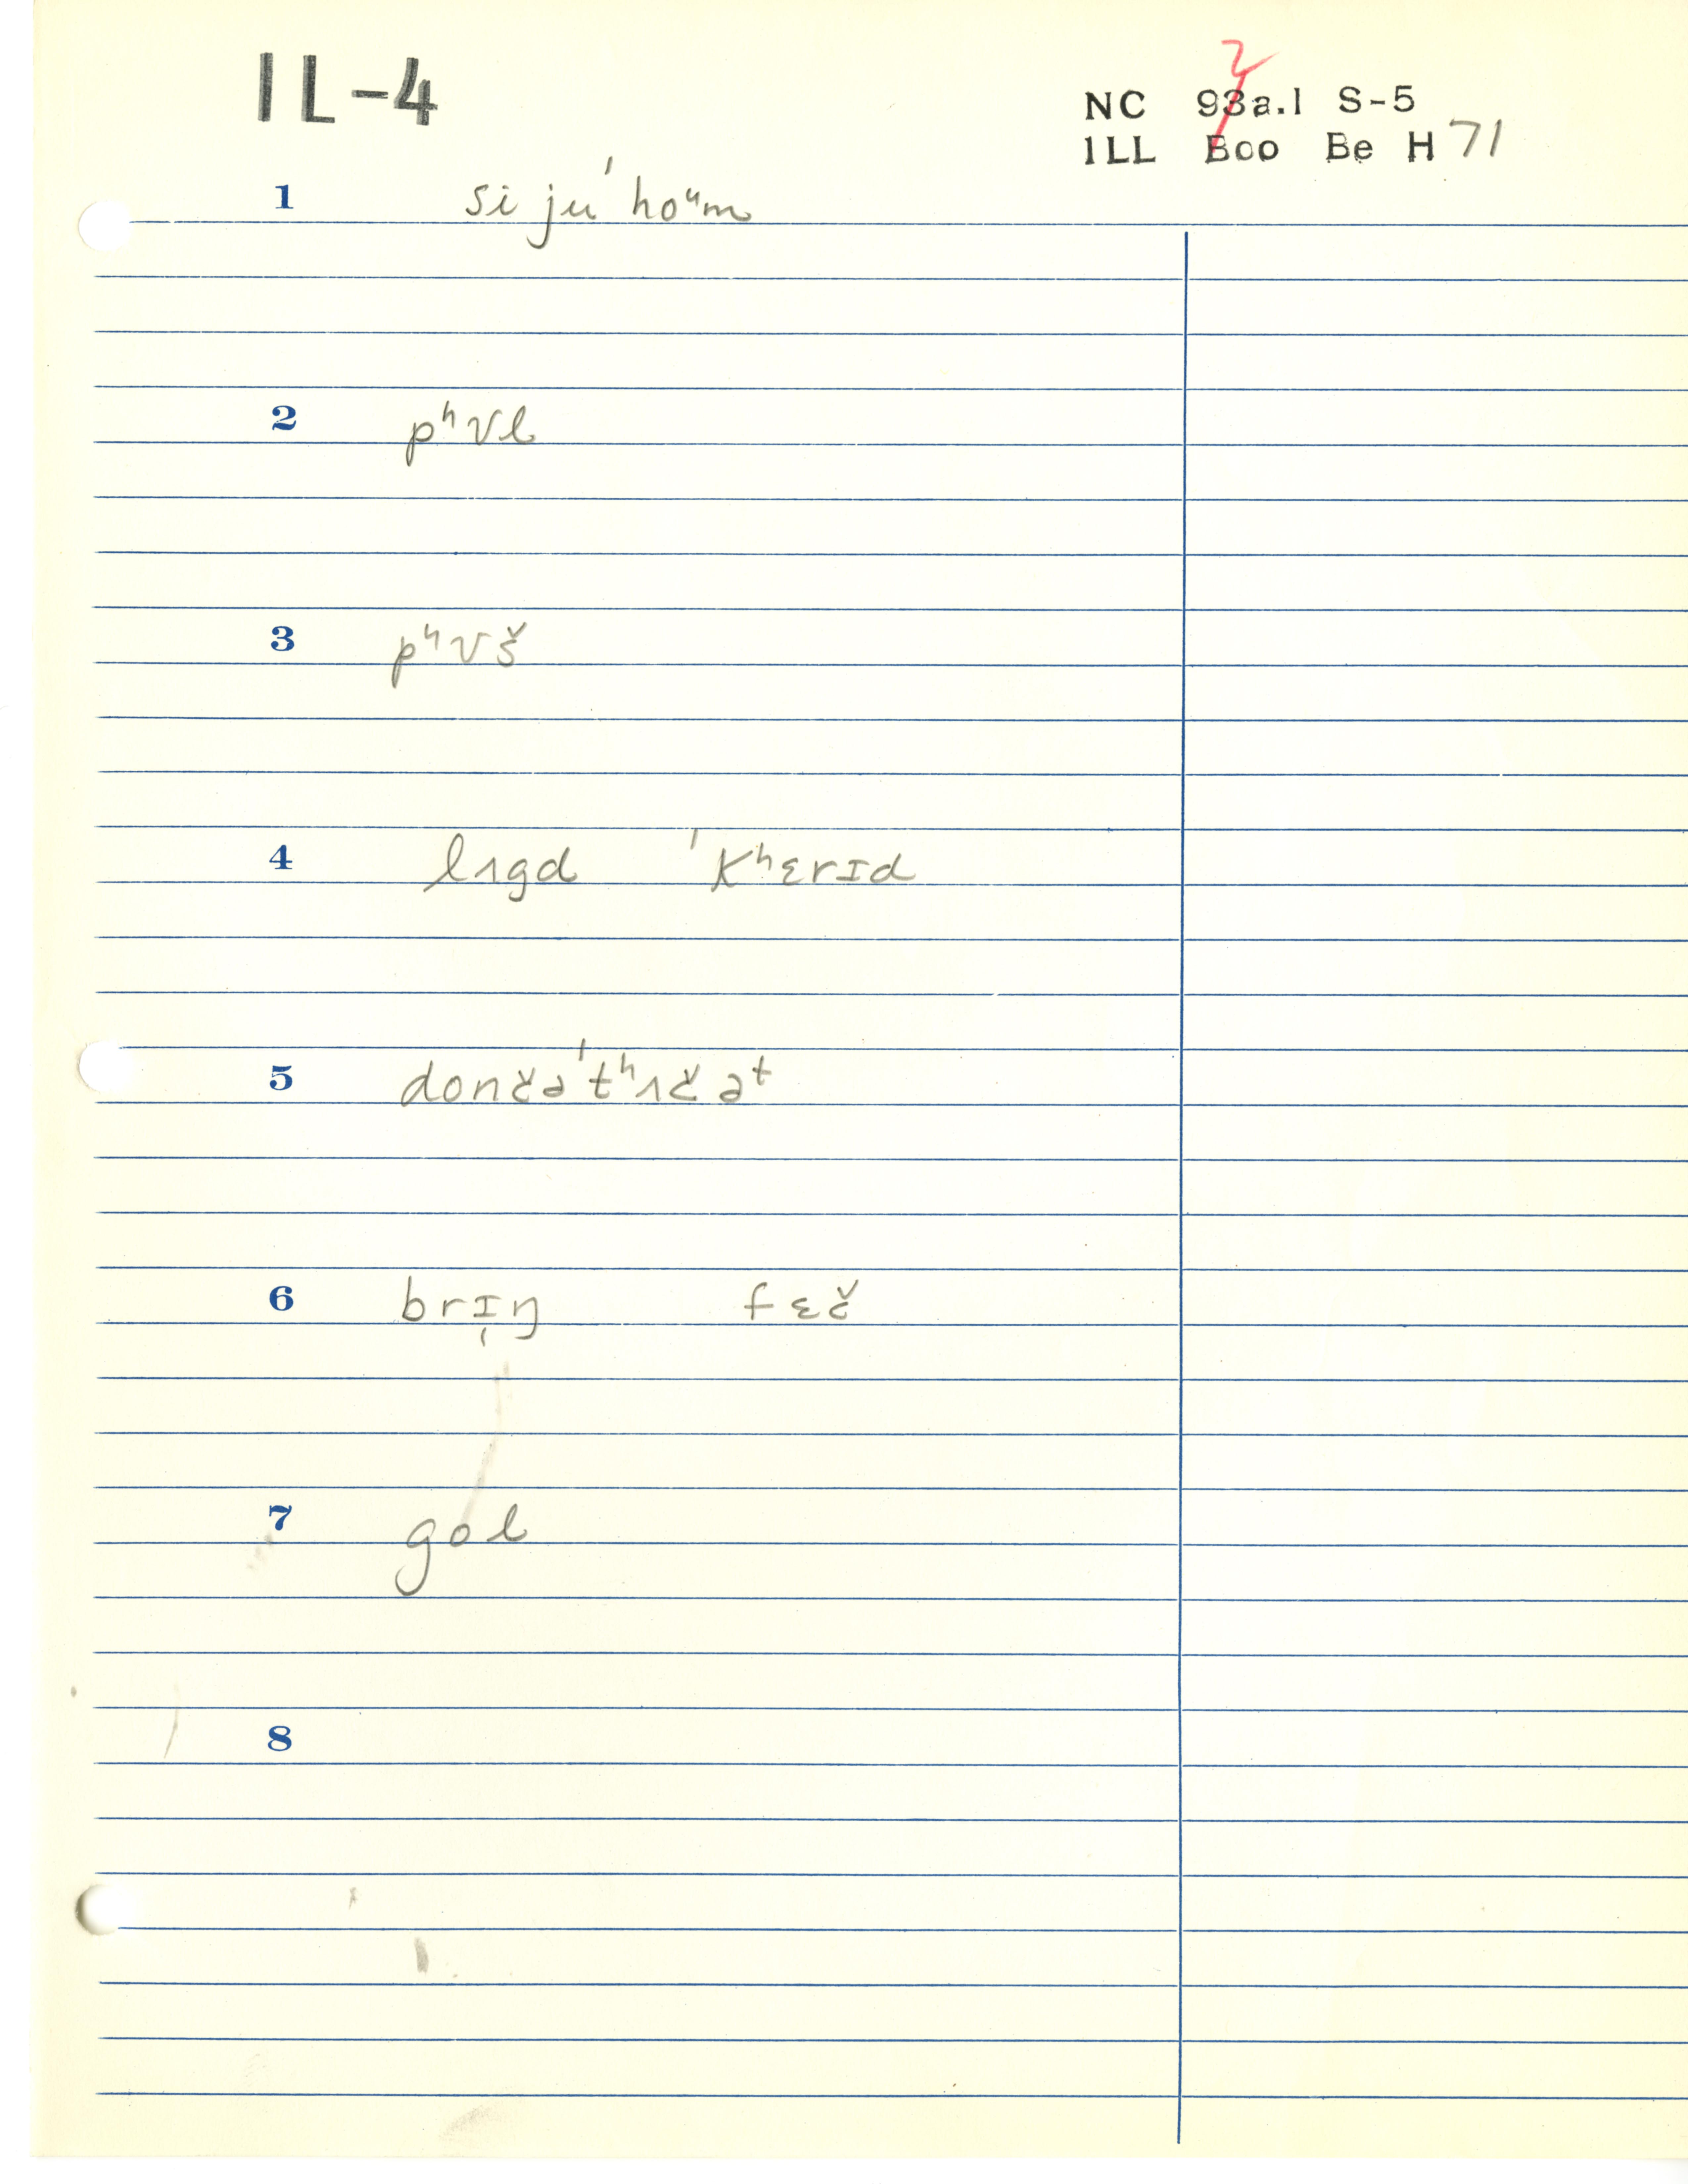 IL-4
NC 93a.1 S-5
2
ILL Boo Be H 71
1 si ju ˈhoᵘm
2 pʰʊl
3 pʰʊš
4 lʌgd ˈkʰɛrɪd
5 dončəˈtʰʌčəᵗ
6 brɪ̩ŋ fɛč
7 gol
8